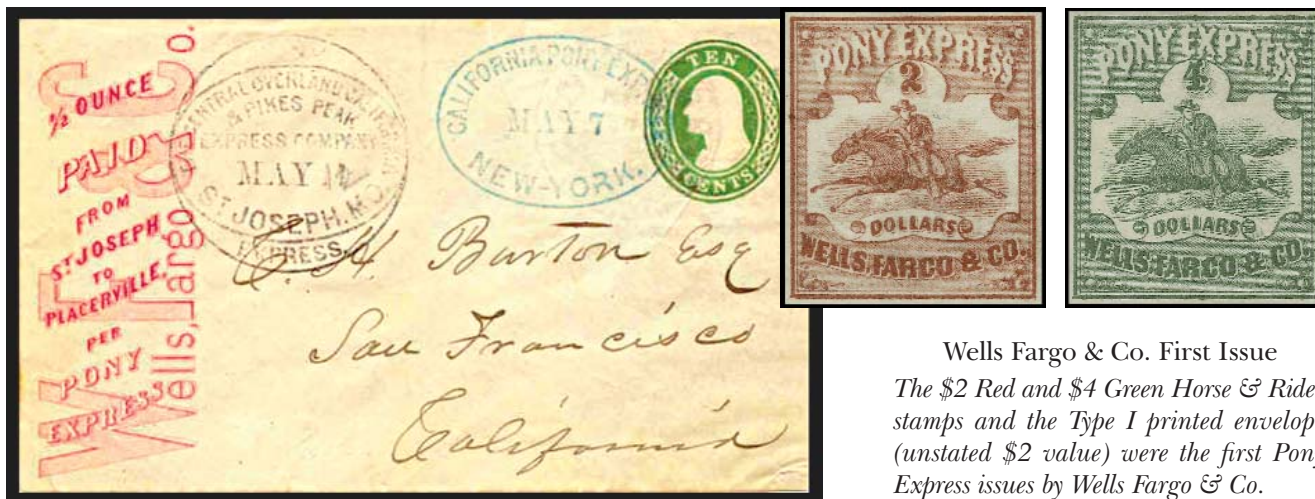 ½ OUNCE
PAID
FROM
ST JOSEPH
TO
PLACERVILLE.
PER
PONY
EXPRESS
Wells, Fargo Co.
CENTRAL OVERLAND
& PIKES PEAK
EXPRESS COMPANY
MAY
ST JOSEPH. MO.
EXPRESS.
CALIFORNIA PONY EXP
MAY 7
NEW-YORK.
TEN
CENTS
Burton Esq
San Francisco
California
PONY EXPRESS
2
DOLLARS
WELLS, FARGO & CO.
PONY EXPRESS
4
DOLLARS
WELLS, FARGO & CO.
Wells Fargo & Co. First Issue
The $2 Red and $4 Green Horse & Ride
stamps and the Type I printed envelop
(unstated $2 value) were the first Pon
Express issues by Wells Fargo & Co.